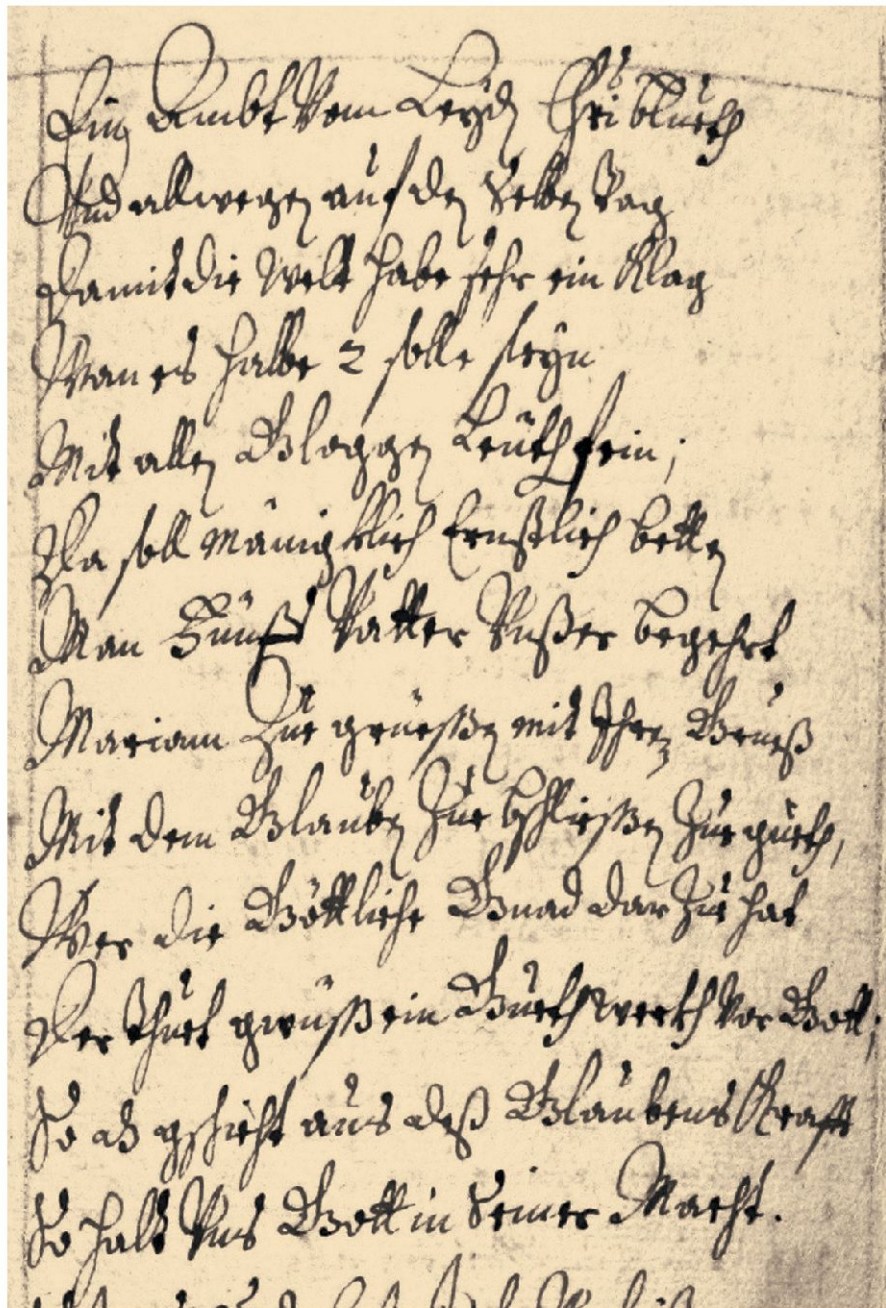 Ein Ambt Vom Leyden Chri blueth
Und allwegen auf den Selben Tag
Damit die Welt habe sehr ein Klag
Wan es halbe 2 solle seyn
Mit allen Gloggen Leüth fein;
Da soll Mäniglich Ernstlich betten
Man Fünff Vatter Unßer begehrt
Mariam Zue grüeßen mit Ihrem Grueß
Mit dem Glauben Zue bschließen Zue gueth,
Wer die Göttliche Gnad dar Zue hat
Der Thuet gwüß ein Gueth werkh Vor Gott;
So als gschicht aus deß Glaubens Krafft
So halt Uns Gott in Seiner Macht.